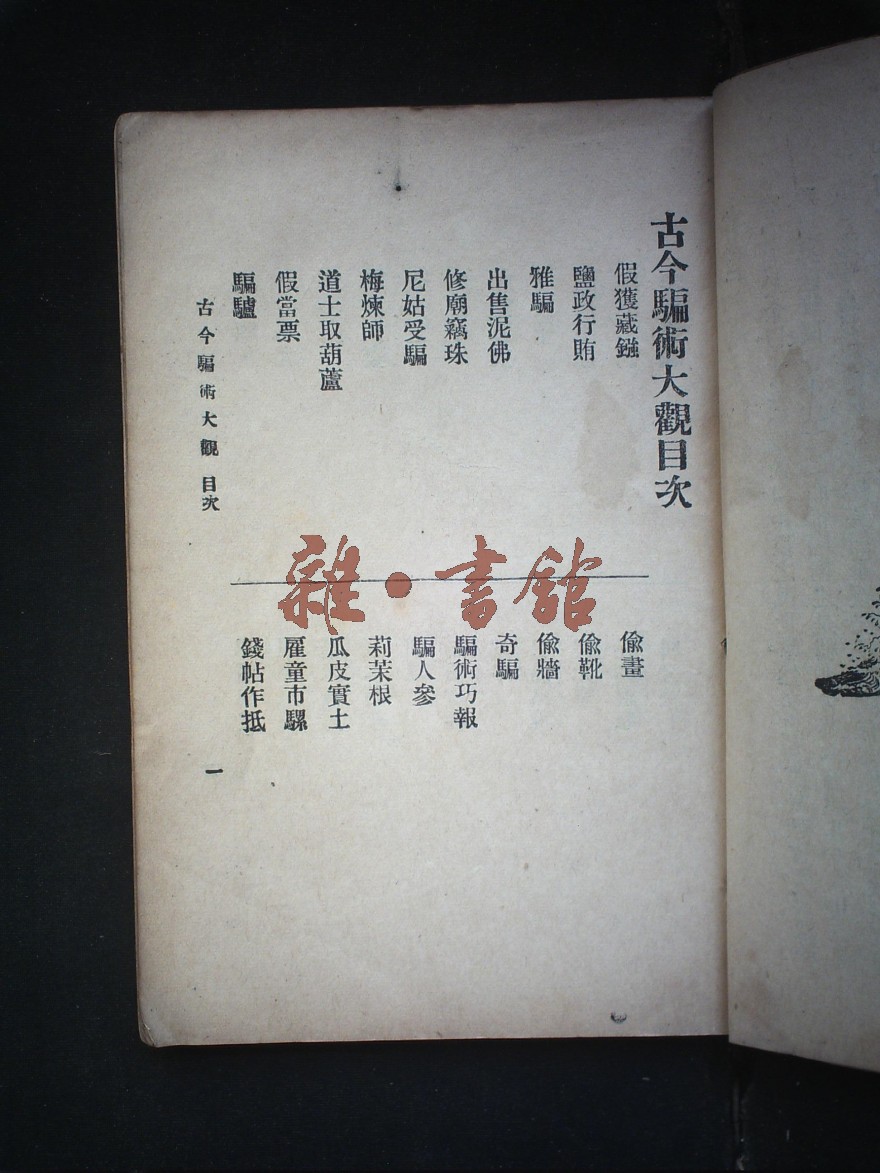 古今騙術大觀目次
假獲藏鏹
鹽政行賄
雅騙
出售泥佛
修廟竊珠
尼姑受騙
梅煉師
道士取葫蘆
假當票
騙驢
偸畫
偸靴
偸牆
奇騙
騙術巧報
騙人參
莉茉根
瓜皮實土
雇童市騾
錢帖作抵
古今騙術大觀 目次
一
雜·書館